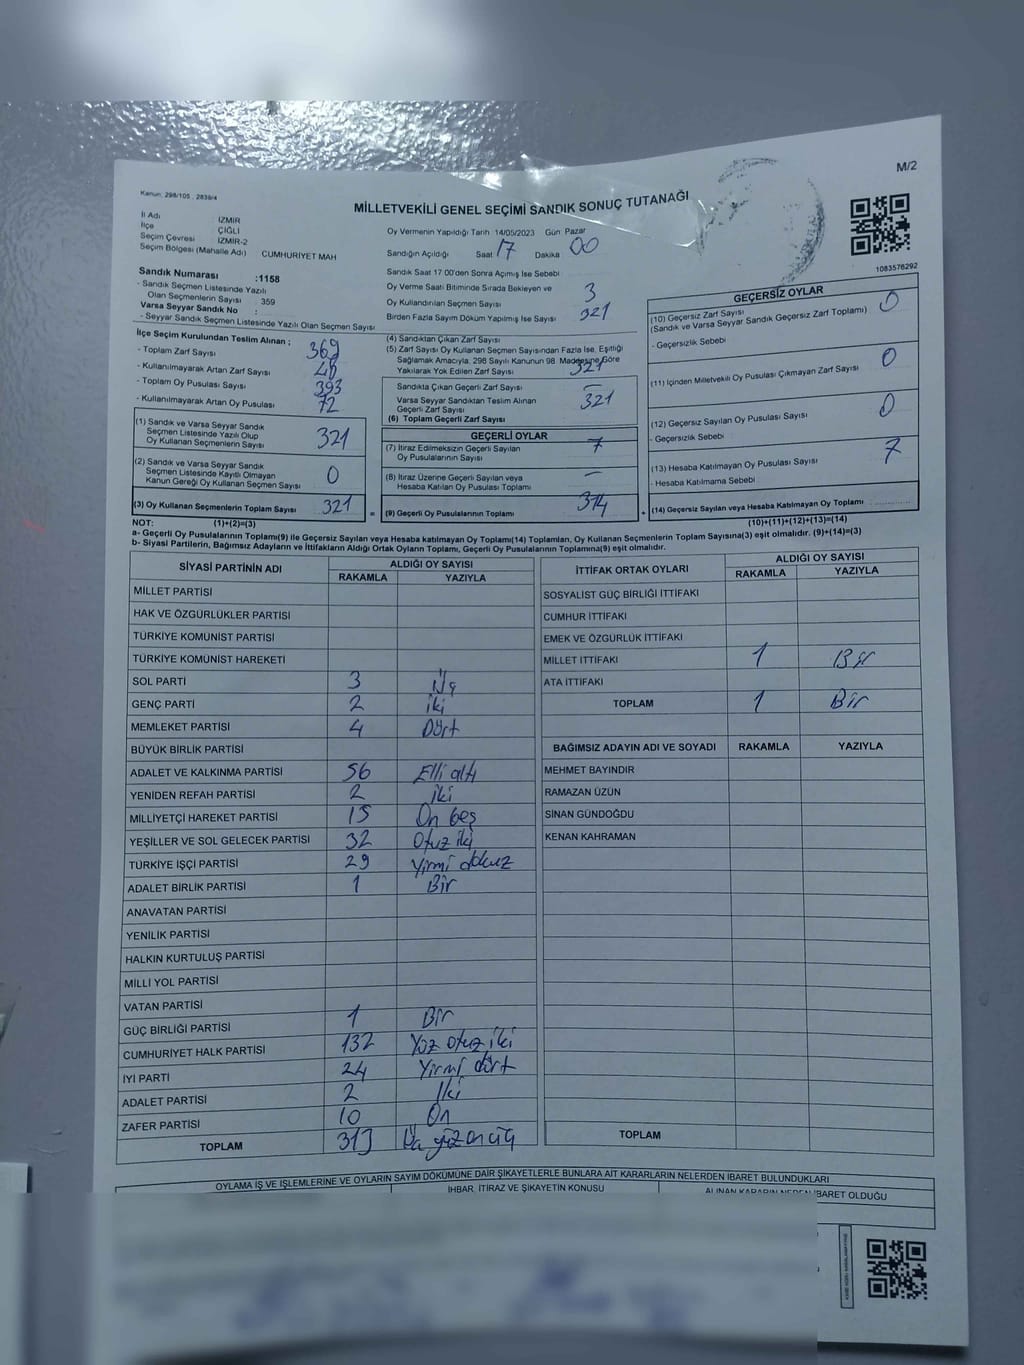 M/2
Kanun, 298/105 , 2839/4
MİLLETVEKİLİ GENEL SEÇİMİ SANDIK SONUÇ TUTANAĞI
İl Adı İZMİR
İlçe ÇİĞLİ
Seçim Çevresi İZMİR-2
Seçim Bölgesi (Mahalle Adı) CUMHURİYET MAH
Sandık Numarası :1158
- Sandık Seçmen Listesinde Yazılı
Olan Seçmenlerin Sayısı : 359
Varsa Seyyar Sandık No :
- Seyyar Sandık Seçmen Listesinde Yazılı Olan Seçmen Sayısı
Oy Vermenin Yapıldığı Tarih 14/05/2023 Gün Pazar
Sandığın Açıldığı Saat 17 Dakika 00
Sandık Saat 17 00'den Sonra Açılmış İse Sebebi
Oy Verme Saati Bitiminde Sırada Bekleyen ve
Oy Kullandırılan Seçmen Sayısı 3
Birden Fazla Sayım Döküm Yapılmış İse Sayısı 321
1083576292
İlçe Seçim Kurulundan Teslim Alınan ;
- Toplam Zarf Sayısı 369
- Kullanılmayarak Artan Zarf Sayısı 48
- Toplam Oy Pusulası Sayısı 393
- Kullanılmayarak Artan Oy Pusulası 72
(1) Sandık ve Varsa Seyyar Sandık
Seçmen Listesinde Yazılı Olup
Oy Kullanan Seçmenlerin Sayısı 321
(2) Sandık ve Varsa Seyyar Sandık
Seçmen Listesinde Kayıtlı Olmayan
Kanun Gereği Oy Kullanan Seçmen Sayısı 0
(3) Oy Kullanan Seçmenlerin Toplam Sayısı 321
(4) Sandıktan Çıkan Zarf Sayısı
(5) Zarf Sayısı Oy Kullanan Seçmen Sayısından Fazla İse, Eşitliği
Sağlamak Amacıyla, 298 Sayılı Kanunun 98. Maddesine Göre
Yakılarak Yok Edilen Zarf Sayısı 321
Sandıkta Çıkan Geçerli Zarf Sayısı —
Varsa Seyyar Sandıktan Teslim Alınan
Geçerli Zarf Sayısı 321
(6) Toplam Geçerli Zarf Sayısı
GEÇERLİ OYLAR
(7) İtiraz Edilmeksizin Geçerli Sayılan
Oy Pusulalarının Sayısı 7
(8) İtiraz Üzerine Geçerli Sayılan veya
Hesaba Katılan Oy Pusulası Toplamı —
= (9) Geçerli Oy Pusulalarının Toplamı 314
GEÇERSİZ OYLAR
(10) Geçersiz Zarf Sayısı 0
(Sandık ve Varsa Seyyar Sandık Geçersiz Zarf Toplamı)
- Geçersizlik Sebebi
(11) İçinden Milletvekili Oy Pusulası Çıkmayan Zarf Sayısı 0
(12) Geçersiz Sayılan Oy Pusulası Sayısı 0
- Geçersizlik Sebebi
(13) Hesaba Katılmayan Oy Pusulası Sayısı 7
- Hesaba Katılmama Sebebi
+ (14) Geçersiz Sayılan veya Hesaba Katılmayan Oy Toplamı
NOT: (1)+(2)=(3) (10)+(11)+(12)+(13)=(14)
a- Geçerli Oy Pusulalarının Toplamı(9) ile Geçersiz Sayılan veya Hesaba katılmayan Oy Toplamı(14) Toplamları, Oy Kullanan Seçmenlerin Toplam Sayısına(3) eşit olmalıdır. (9)+(14)=(3)
b- Siyasi Partilerin, Bağımsız Adayların ve İttifakların Aldığı Ortak Oyların Toplamı, Geçerli Oy Pusulalarının Toplamına(9) eşit olmalıdır.
SİYASİ PARTİNİN ADI ALDIĞI OY SAYISI
RAKAMLA YAZIYLA
MİLLET PARTİSİ
HAK VE ÖZGÜRLÜKLER PARTİSİ
TÜRKİYE KOMÜNİST PARTİSİ
TÜRKİYE KOMÜNİST HAREKETİ
SOL PARTİ 3 Üç
GENÇ PARTİ 2 iki
MEMLEKET PARTİSİ 4 Dört
BÜYÜK BİRLİK PARTİSİ
ADALET VE KALKINMA PARTİSİ 56 Elli altı
YENİDEN REFAH PARTİSİ 2 iki
MİLLİYETÇİ HAREKET PARTİSİ 15 On beş
YEŞİLLER VE SOL GELECEK PARTİSİ 32 Otuz iki
TÜRKİYE İŞÇİ PARTİSİ 29 Yirmi dokuz
ADALET BİRLİK PARTİSİ 1 Bir
ANAVATAN PARTİSİ
YENİLİK PARTİSİ
HALKIN KURTULUŞ PARTİSİ
MİLLİ YOL PARTİSİ
VATAN PARTİSİ
GÜÇ BİRLİĞİ PARTİSİ 1 Bir
CUMHURİYET HALK PARTİSİ 132 Yüz otuz iki
İYİ PARTİ 24 Yirmi dört
ADALET PARTİSİ 2 İki
ZAFER PARTİSİ 10 On
TOPLAM 313
İTTİFAK ORTAK OYLARI ALDIĞI OY SAYISI
RAKAMLA YAZIYLA
SOSYALİST GÜÇ BİRLİĞİ İTTİFAKI
CUMHUR İTTİFAKI
EMEK VE ÖZGÜRLÜK İTTİFAKI
MİLLET İTTİFAKI 1 Bir
ATA İTTİFAKI
TOPLAM 1 Bir
BAĞIMSIZ ADAYIN ADI VE SOYADI RAKAMLA YAZIYLA
MEHMET BAYINDIR
RAMAZAN ÜZÜN
SİNAN GÜNDOĞDU
KENAN KAHRAMAN
TOPLAM
OYLAMA İŞ VE İŞLEMLERİNE VE OYLARIN SAYIM DÖKÜMÜNE DAİR ŞİKAYETLERLE BUNLARA AİT KARARLARIN NELERDEN İBARET BULUNDUKLARI
İHBAR, İTİRAZ VE ŞİKAYETİN KONUSU ALINAN KARARIN NEDEN İBARET OLDUĞU